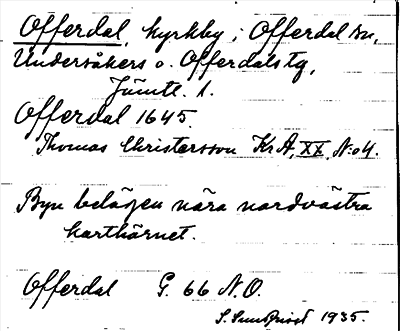 Offerdal, kyrkby; Offerdal sn,
Undersåkers o. Offerdals tg,
Jämtl. l.
Offerdal 1645.
Thomas Christersson KrA, XX, N:o 4.
Byn belägen nära nordvästra
karthörnet.
Offerdal G. 66 N.O.
S. Sundqvist 1935.